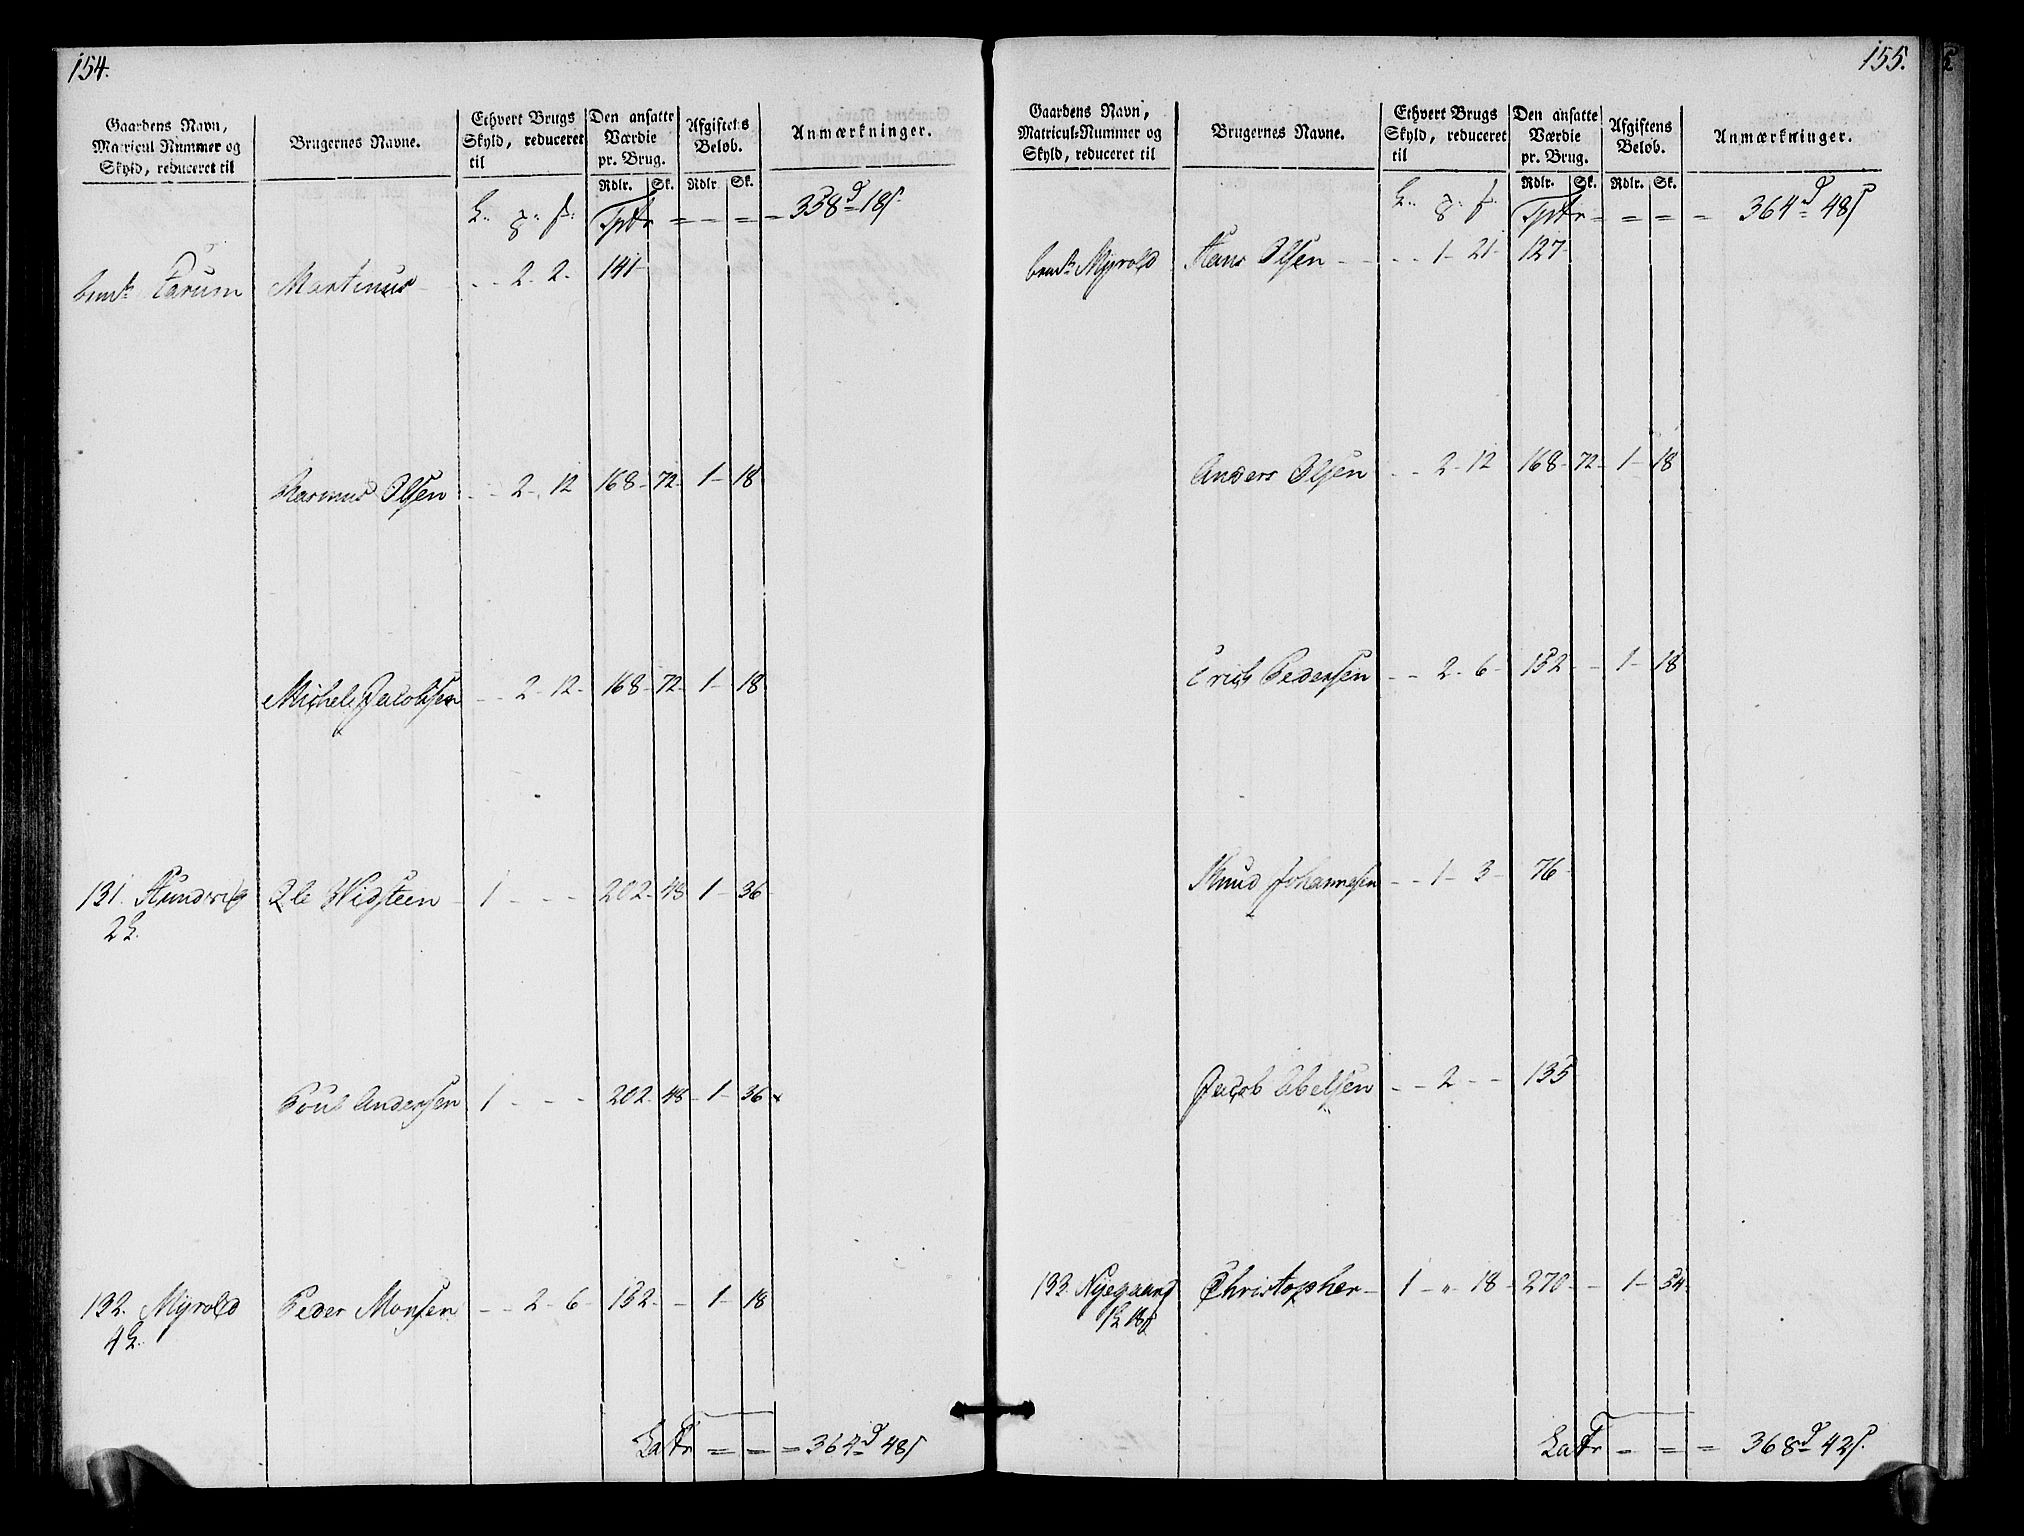 154.
Gaardens Navn,
Matricul Nummer og
Skyld, reduceret til
Brugernes Navne.
Ethvert Brugs
Skyld, reduceret
til
Den ansatte
Værdie
pr. Brug.
Afgiftens
Beløb.
Anmærkninger.
Rdlr. Sk. Rdlr Sk.
Tptr = = = = 358 d 18 s.
Farum Martinus - - 2 - 2 - 141 -
Rasmus Olsen - - 2 - 12 168 - 72 - 1 - 18
Michel Jacobsen - - 2 - 12 - 168 - 72 - 1 - 18
131. Hundvig Ole Widsteen - 1 - - - 202 - 48 1 - 36
2
Poul Andersen 1 - - - 202 - 48 - 1 - 36
132. Myrold Peder Monsen - - 2 - 6 - 152 - - 1 - 18
4
Latr = = = 364 d 48 s
155.
Gaardens Navn,
Matricul-Nummer og
Skyld, reduceret til
Brugernes Navne.
Ethvert Brugs
Skyld, reduceret
til
Den ansatte
Værdie
pr. Brug.
Afgiftens
Beløb.
Anmærkninger.
Rdlr. Sk. Rdlr. Sk.
Tptr = = = = 364 d 48 s
Myrold Hans Olsen - - - - 1 - 21 - 127 -
Anders Olsen - - 2 - 12 168 - 72 - 1 - 18
Erich Pedersen - - 2 - 6 - 152 - - 1 - 18
Knud Johannesen - - 1 - 3 - 76 -
Jacob Abelsen - - 2 - - 135
133. Nyegaard Christopher - 1 - " - 18 - 270 - - 1 - 54 -
Latr = = = 368 d 42 s.